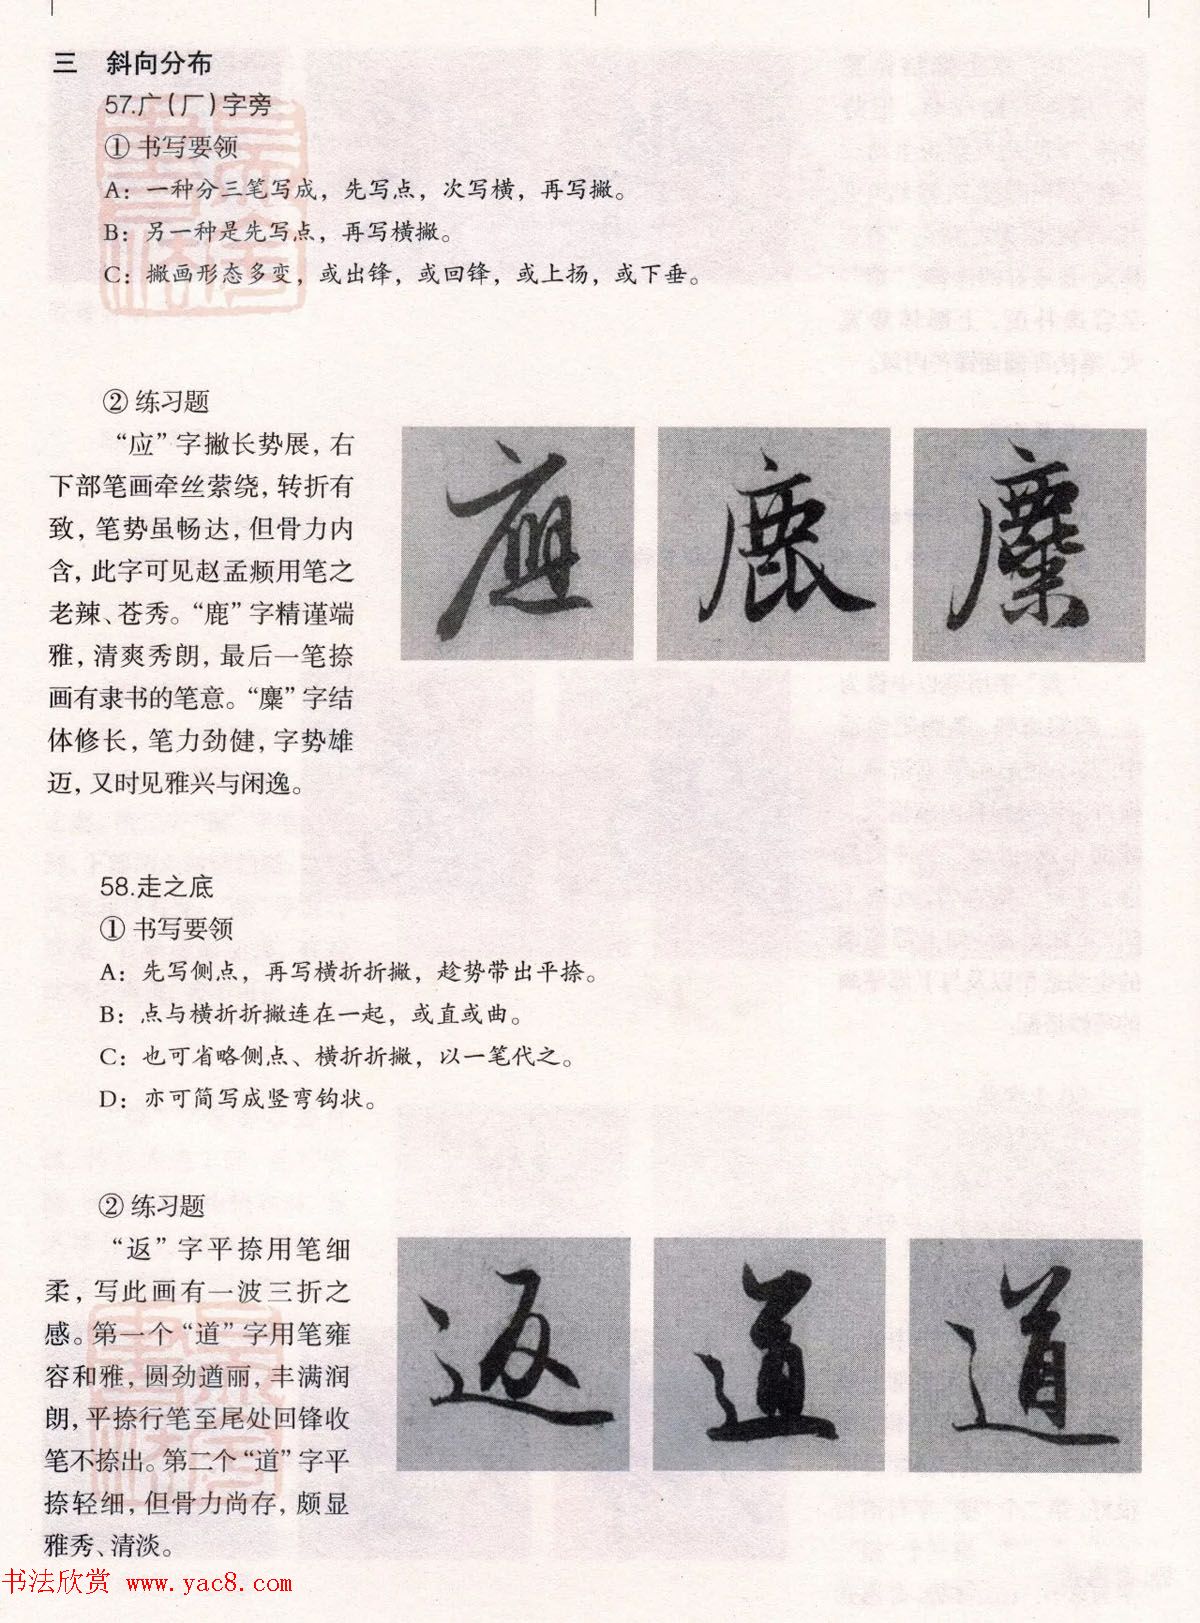 三 斜向分布
57.广(厂)字旁
① 书写要领
A：一种分三笔写成，先写点，次写横，再写撇。
B：另一种是先写点，再写横撇。
C：撇画形态多变，或出锋，或回锋，或上扬，或下垂。
② 练习题
“应”字撇长势展，右
下部笔画牵丝萦绕，转折有
致，笔势虽畅达，但骨力内
含，此字可见赵孟頫用笔之
老辣、苍秀。“鹿”字精谨端
雅，清爽秀朗，最后一笔捺
画有隶书的笔意。“麋”字结
体修长，笔力劲健，字势雄
迈，又时见雅兴与闲逸。
應 鹿 麋
58.走之底
① 书写要领
A：先写侧点，再写横折折撇，趁势带出平捺。
B：点与横折折撇连在一起，或直或曲。
C：也可省略侧点、横折折撇，以一笔代之。
D：亦可简写成竖弯钩状。
② 练习题
“返”字平捺用笔细
柔，写此画有一波三折之
感。第一个“道”字用笔雍
容和雅，圆劲遒丽，丰满润
朗，平捺行笔至尾处回锋收
笔不捺出。第二个“道”字平
捺轻细，但骨力尚存，颇显
雅秀、清淡。
返 道 道
书法欣赏 www.yac8.com